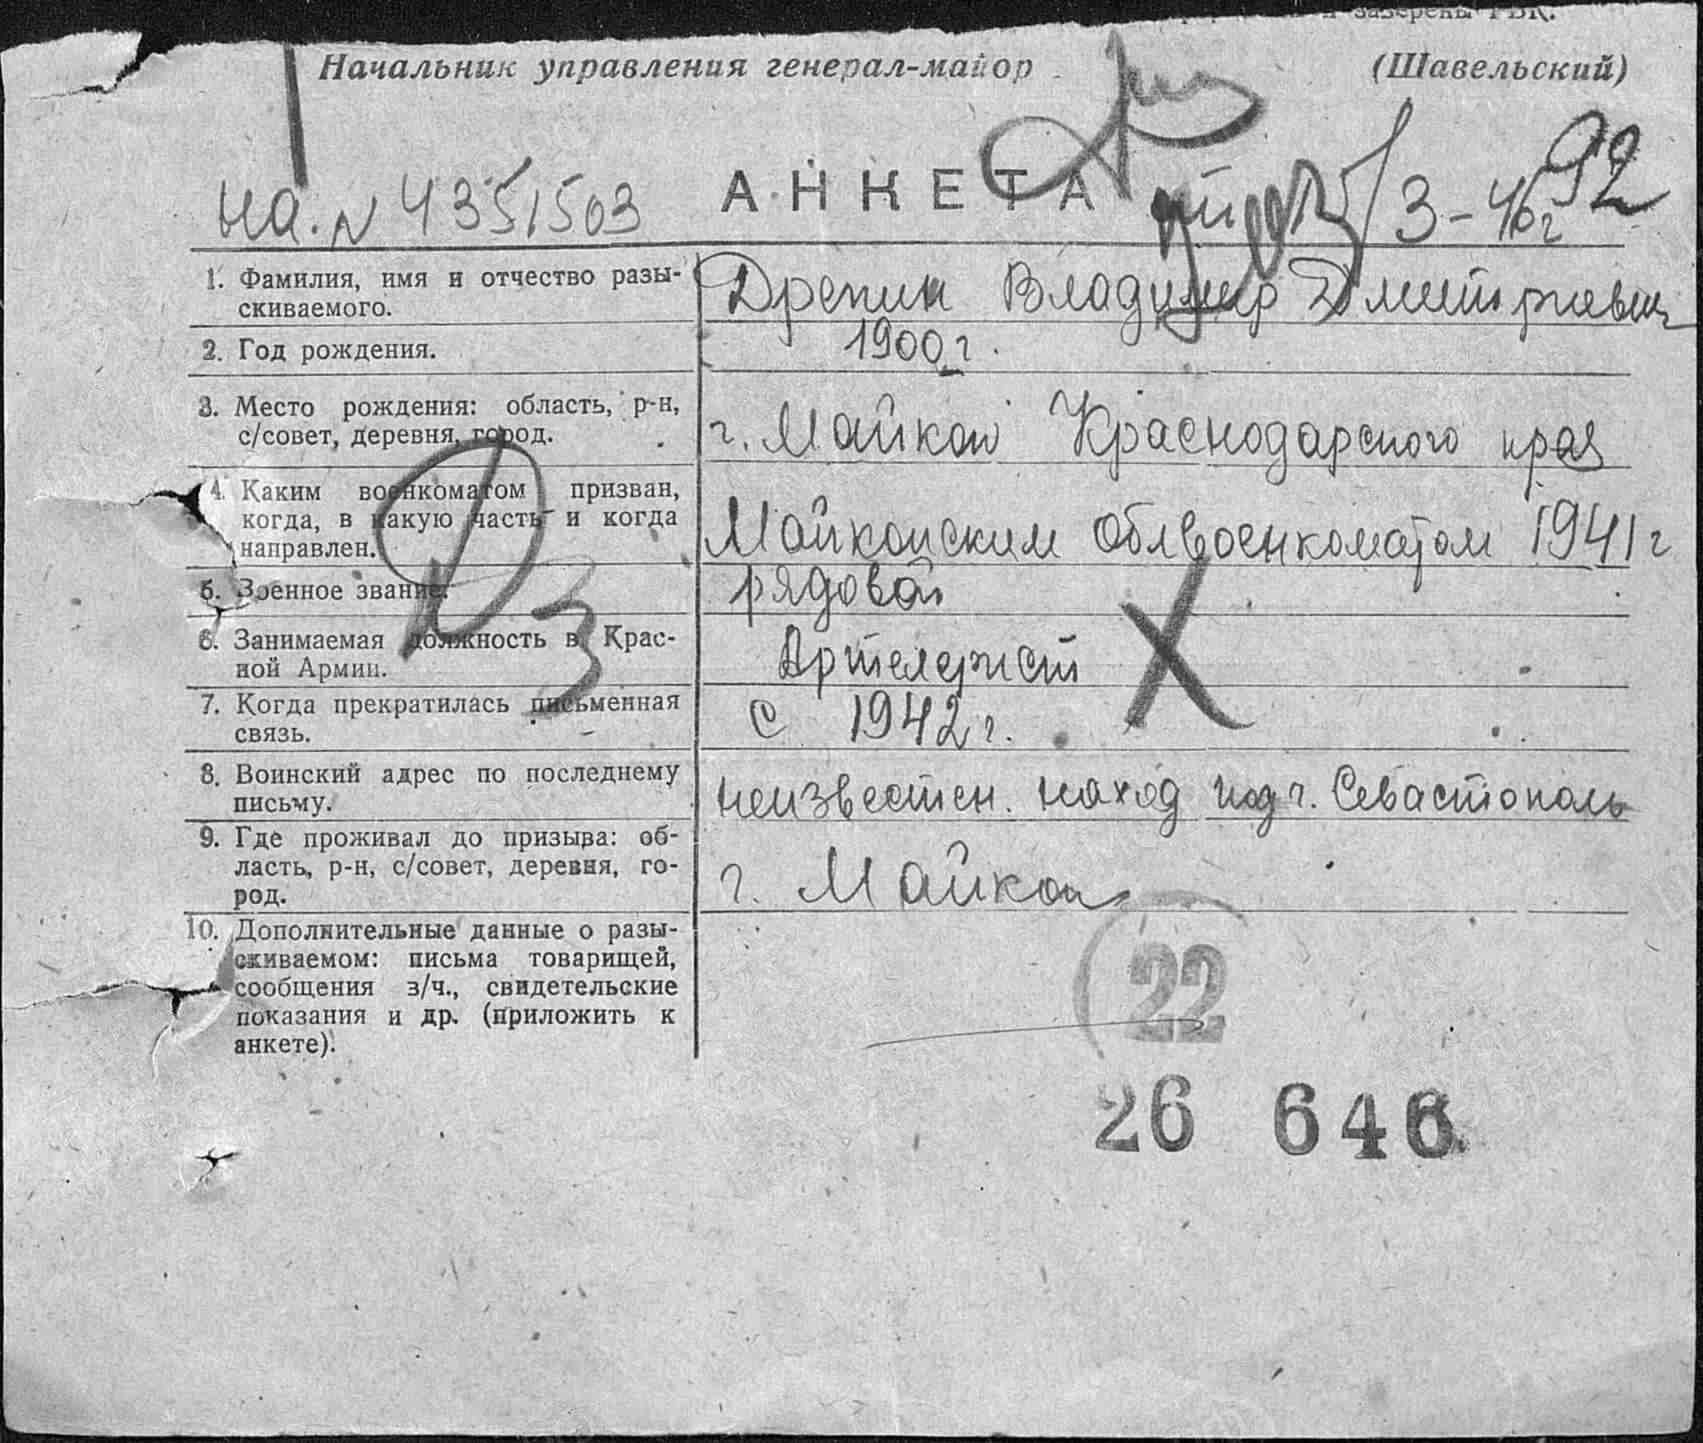 заверены РВК.
Начальник управления генерал-майор (Шавельский)
92
на. N 4351503 АНКЕТА 3-46г
1. Фамилия, имя и отчество разы-
скиваемого.
Дрепин Владимир Дмитриевич
2. Год рождения.
1900 г.
3. Место рождения: область, р-н,
с/совет, деревня, город.
г. Майкоп Краснодарского края
4. Каким военкоматом призван,
когда, в какую часть и когда
направлен.
Майкопским облвоенкоматом 1941 г
5. Военное звание.
рядовой
6. Занимаемая должность в Крас-
ной Армии.
Артелерист
7. Когда прекратилась письменная
связь.
с 1942 г.
8. Воинский адрес по последнему
письму.
неизвестен. наход под г. Севастополь
9. Где проживал до призыва: об-
ласть, р-н, с/совет, деревня, го-
род.
г. Майкоп
10. Дополнительные данные о разы-
скиваемом: письма товарищей,
сообщения з/ч., свидетельские
показания и др. (приложить к
анкете).
22
26 646